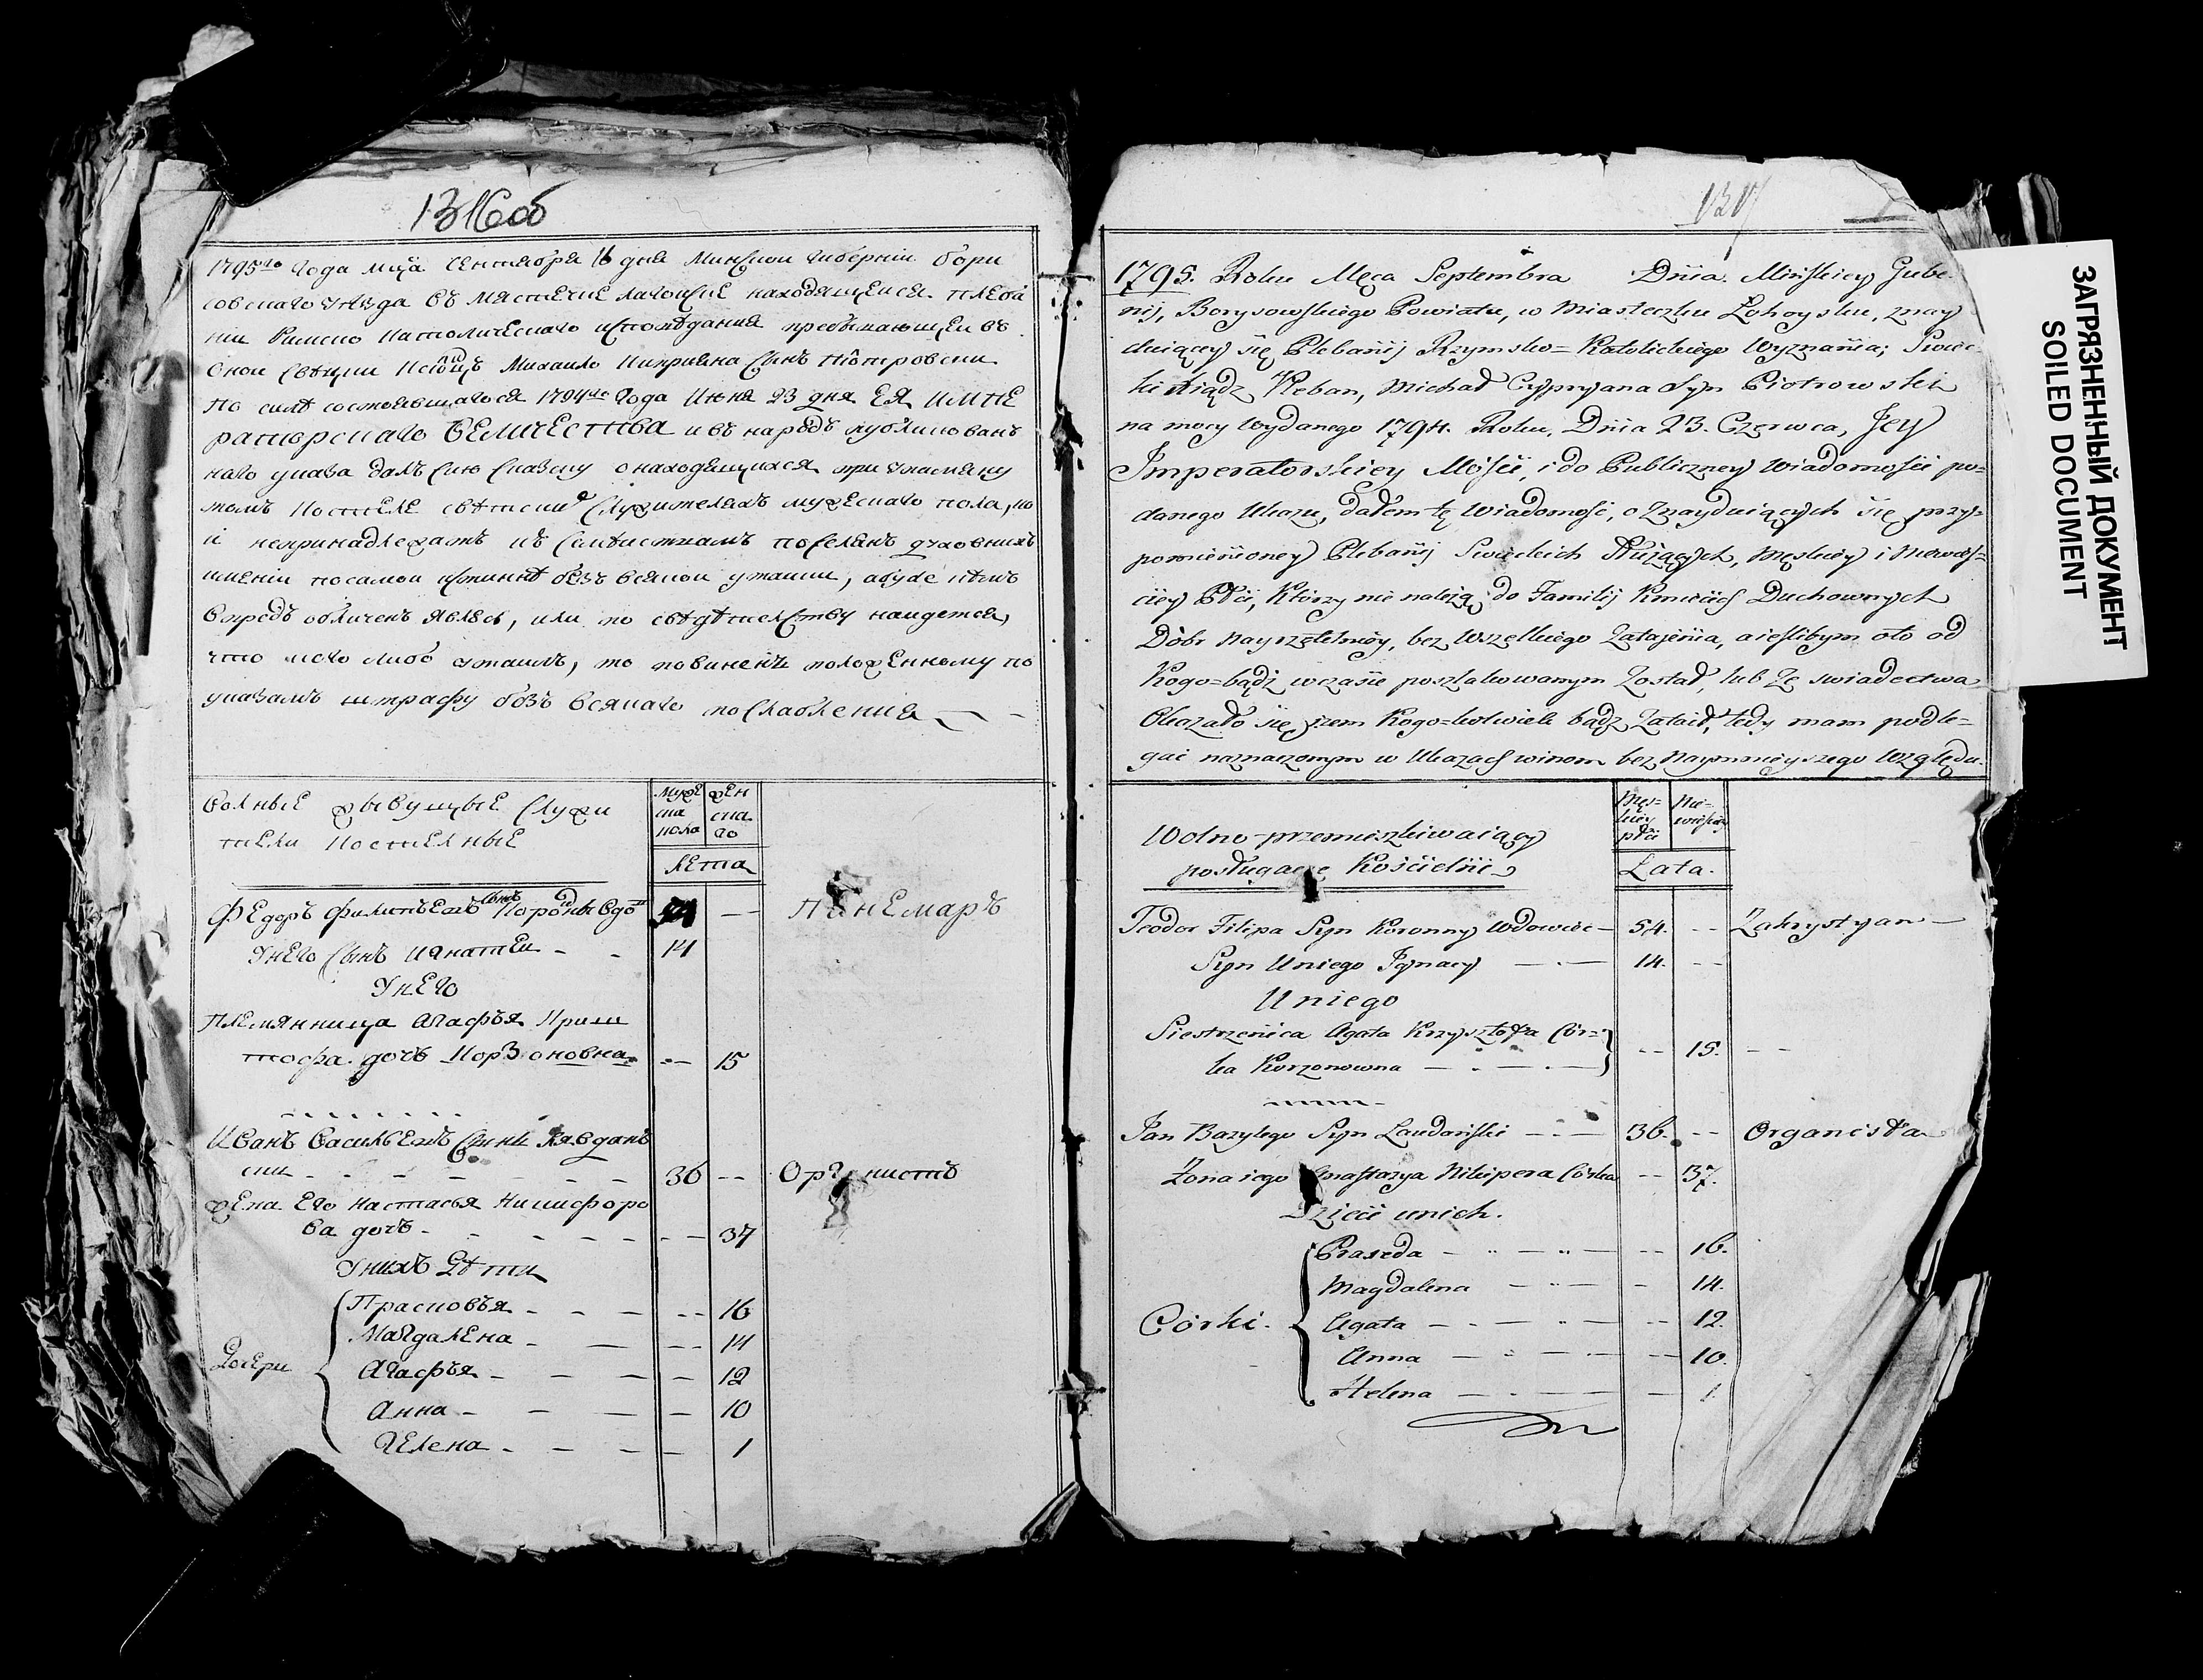 1316об
1795го Года мца Сентября 16 дня Минской Губерніи Бори
совскаго уезда въ местечке Лагойске находящейся плеба
ніи Римско Католическаго исповѣданія пребывающей въ
оной свецки Ксіонцъ Михайло Киприяна сынъ Піотровски
по силѣ состоявшагося 1794го Года Июня 23 дня ЕЯ ИМПЕ
раторскаго ВЕЛИЧЕСТВА и въ народъ публикован
наго указа далъ сию сказку о находящихся при укамяну
томъ костеле светски служителахъ мужескаго пола, но
и непринадлежатъ къ семействамъ поселянъ духовныхъ
имении по самой истиннѣ безъ всякой утайки, а буде кемъ
впредъ обличенъ явлюсь, или по свѣдѣтелству найдется,
что кого либо утаилъ, то повиненъ положенному по
указамъ штрафу безъ всякаго послабления
Волные живущые служи
тели костелные
муже
ска
пола
жен
ска
го
лета
Федоръ Филипьевъ сынъ Коронны вдо
54 -- Понемаръ
У него сынъ Игнатей - - 14
У него
Племянница Агафья Криш
тофа дочъ Корзоновна -- 15
Иванъ Васильевъ сынъ Лявданъ
ски - - - - - - 36 -- Органистъ
жена его Настасья Никифоро
ва дочъ - - - - - - - 37
У нихъ дѣти
Дочери
Прасковья - - - - - 16
Магдалена - - - - 14
Агафья - - - - 12
Анна - - - - 10
Гелена - - - - 1
137
1795. Roku Męca Septembra Dnia. Mińskiey Gube-
nij, Borysowskiego Powiatu, w Miasteczku Łohoysku, znay
duiącey się Plebanij Rzymsko=Katolickiego Wyznania; Swiec-
ki Xiądz Pleban, Michał Cypryana Syn Piotrowski
na mocy wydanego 1794. Roku, Dnia 23. Czerwca, Jey
Imperatorskiey Mości, i do Publiczney Wiadomości po=
danego Ukazu, dałem tę Wiadomość, o Znayduiących się przy=
pomienioney Plebanij Swieckich Służących, męskiey i niewieś=
ciey Płci, Którzy nie należą do Familij Kmieciów Duchownych
Dobr nayrzetelniey, bez wszelkiego Zatajenia, a ieślibym oto od
Kogo=bądź wczasie poszlakowanym Został, lub Ze swiadectwa
Okazało się żem Kogo=kolwiek bądz Zataił, tedy mam podle=
gać naznaczonym w Ukazach winom bez naymnieyszego Względu.
Wolno-przemieszkiwaiący
posługacze Kościelni
Męs-
kiey
płci
Nie-
wieściey
Lata.
Teodor Filipa Syn Koronny Wdowiec - 54. -- Zakrystyan -
Syn Uniego Jgnacy - - - 14. --
Uniego
Siestrzenica Agata Krzysztofa Cór=
ka Korzonowna - - - - -- 15. --
Jan Bazylego Syn Laudański - - - 36. -- Organista
Zona iego Anastazya Nikipera Córka -- 37.
Dzieci unich.
Córki.
Praxeda - - - - -- 16.
Magdalena - - - - 14.
Agata - - - - -- 12.
Anna - - - - -- 10.
Helena - - - - 1.
ЗАГРЯЗНЕННЫЙ ДОКУМЕНТ
SOILED DOCUMENT